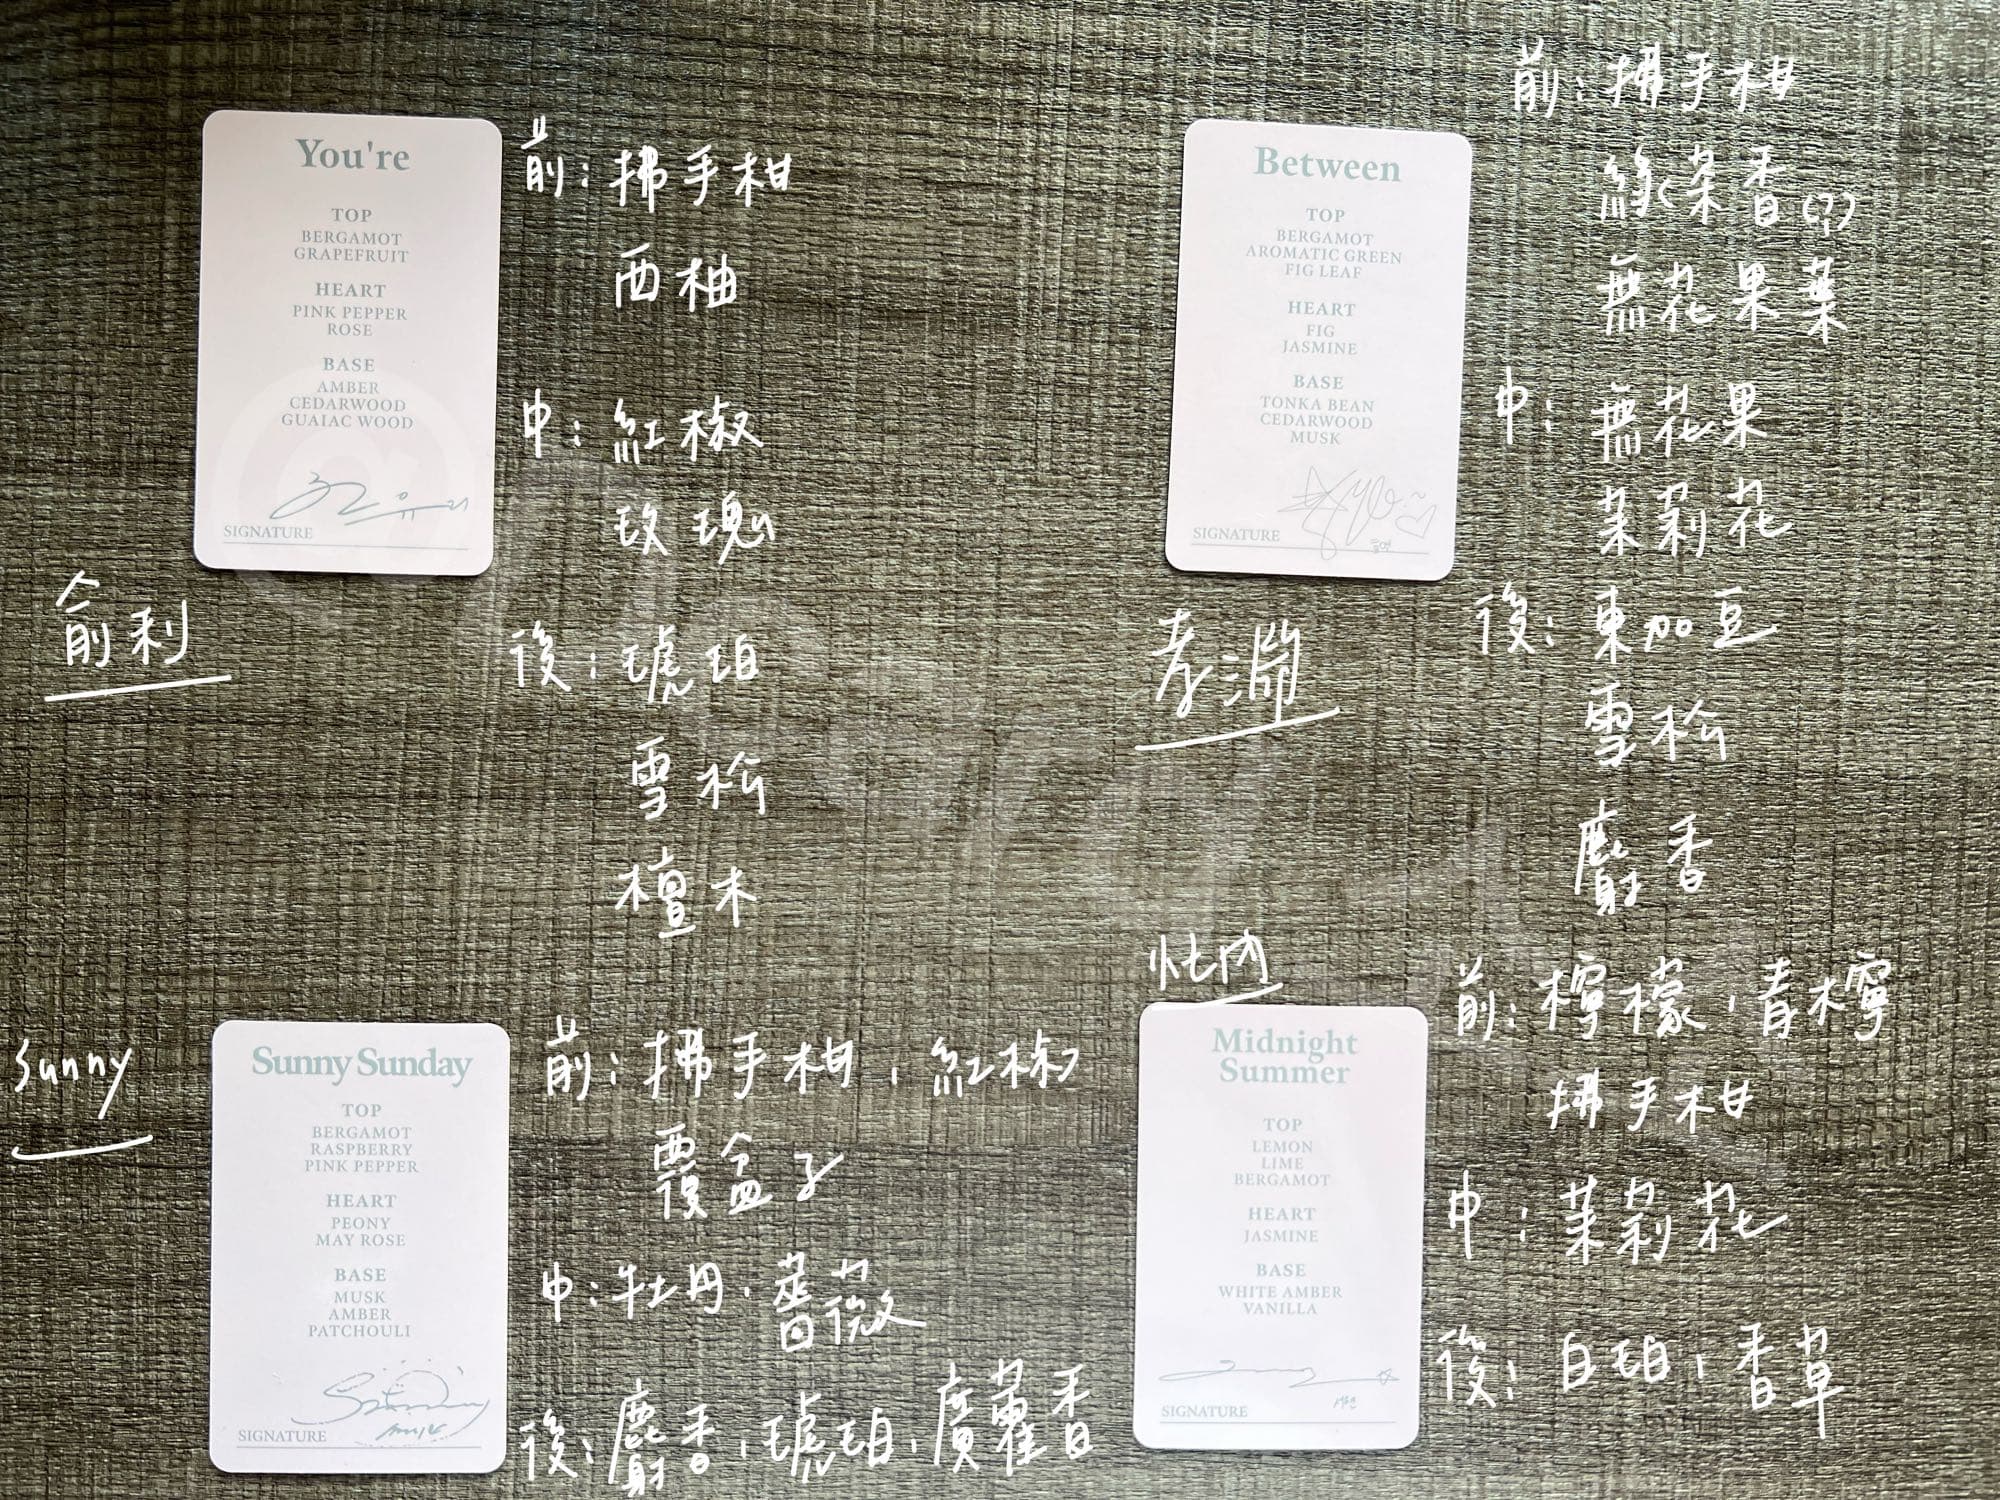 You're
TOP
BERGAMOT
GRAPEFRUIT
HEART
PINK PEPPER
ROSE
BASE
AMBER
CEDARWOOD
GUAIAC WOOD
SIGNATURE
俞利
前：拂手柑
西柚
中：紅椒
玫瑰
後：琥珀
雪松
檀木
Between
TOP
BERGAMOT
AROMATIC GREEN
FIG LEAF
HEART
FIG
JASMINE
BASE
TONKA BEAN
CEDARWOOD
MUSK
SIGNATURE
孝淵
前：拂手柑
綠茶香(?)
無花果葉
中：無花果
茉莉花
後：東加豆
雪松
麝香
Sunny
Sunny Sunday
TOP
BERGAMOT
RASPBERRY
PINK PEPPER
HEART
PEONY
MAY ROSE
BASE
MUSK
AMBER
PATCHOULI
SIGNATURE
前：拂手柑，紅椒
覆盆子
中：牡丹，薔薇
後：麝香，琥珀，廣藿香
Midnight
Summer
TOP
LEMON
LIME
BERGAMOT
HEART
JASMINE
BASE
WHITE AMBER
VANILLA
SIGNATURE
前：檸檬，青檸
拂手柑
中：茉莉花
後：白珀，香草